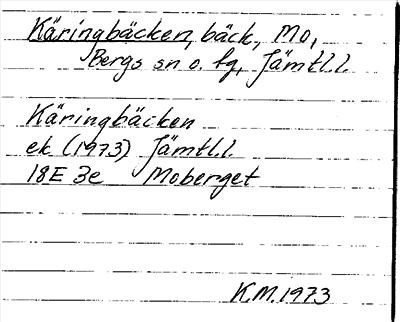 Käringbäcken, bäck, Mo,
Bergs sn o. tg, Jämtl.l.
Käringbäcken
ek (1973) Jämtl.l.
18E 3e Moberget
K.M. 1973